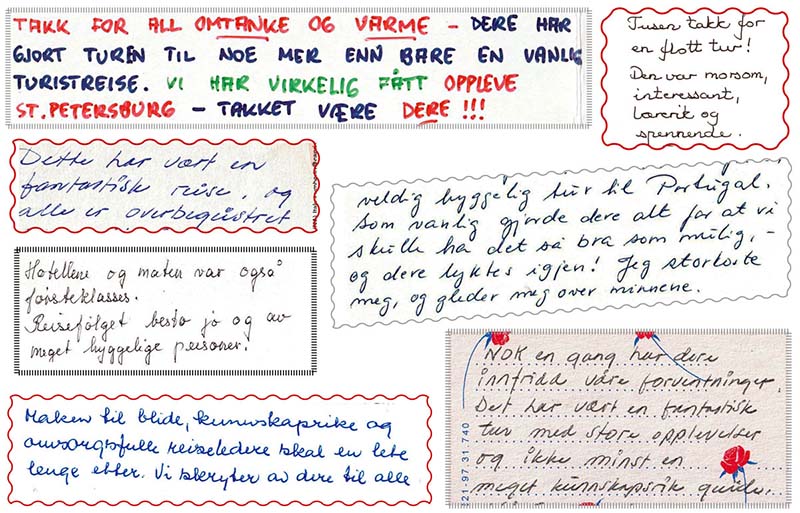 TAKK FOR ALL OMTANKE OG VARME – DERE HAR
GJORT TUREN TIL NOE MER ENN BARE EN VANLIG
TURISTREISE. VI HAR VIRKELIG FÅTT OPPLEVE
ST. PETERSBURG – TAKKET VÆRE DERE !!!
Tusen takk for
en flott tur!
Den var morsom,
interessant,
lærerik og
spennende.
Dette har vært en
fantastisk reise, og
alle er overbegeistret
veldig hyggelig tur til Portugal.
Som vanlig gjorde dere alt for at vi
skulle ha det så bra som mulig, –
og dere lyktes igjen! Jeg storkoste
meg, og gleder meg over minnene.
Hotellene og maten var også
førsteklasses.
Reisefølget besto jo og av
meget hyggelige personer.
NOK en gang har dere
innfridd våre forventninger.
Det har vært en fantastisk
tur med store opplevelser
og ikke minst en
meget kunnskapsrik guide.
21-97 31.740
Maken til blide, kunnskapsrike og
omsorgsfulle reiseledere skal en lete
lenge etter. Vi skryter av dere til alle